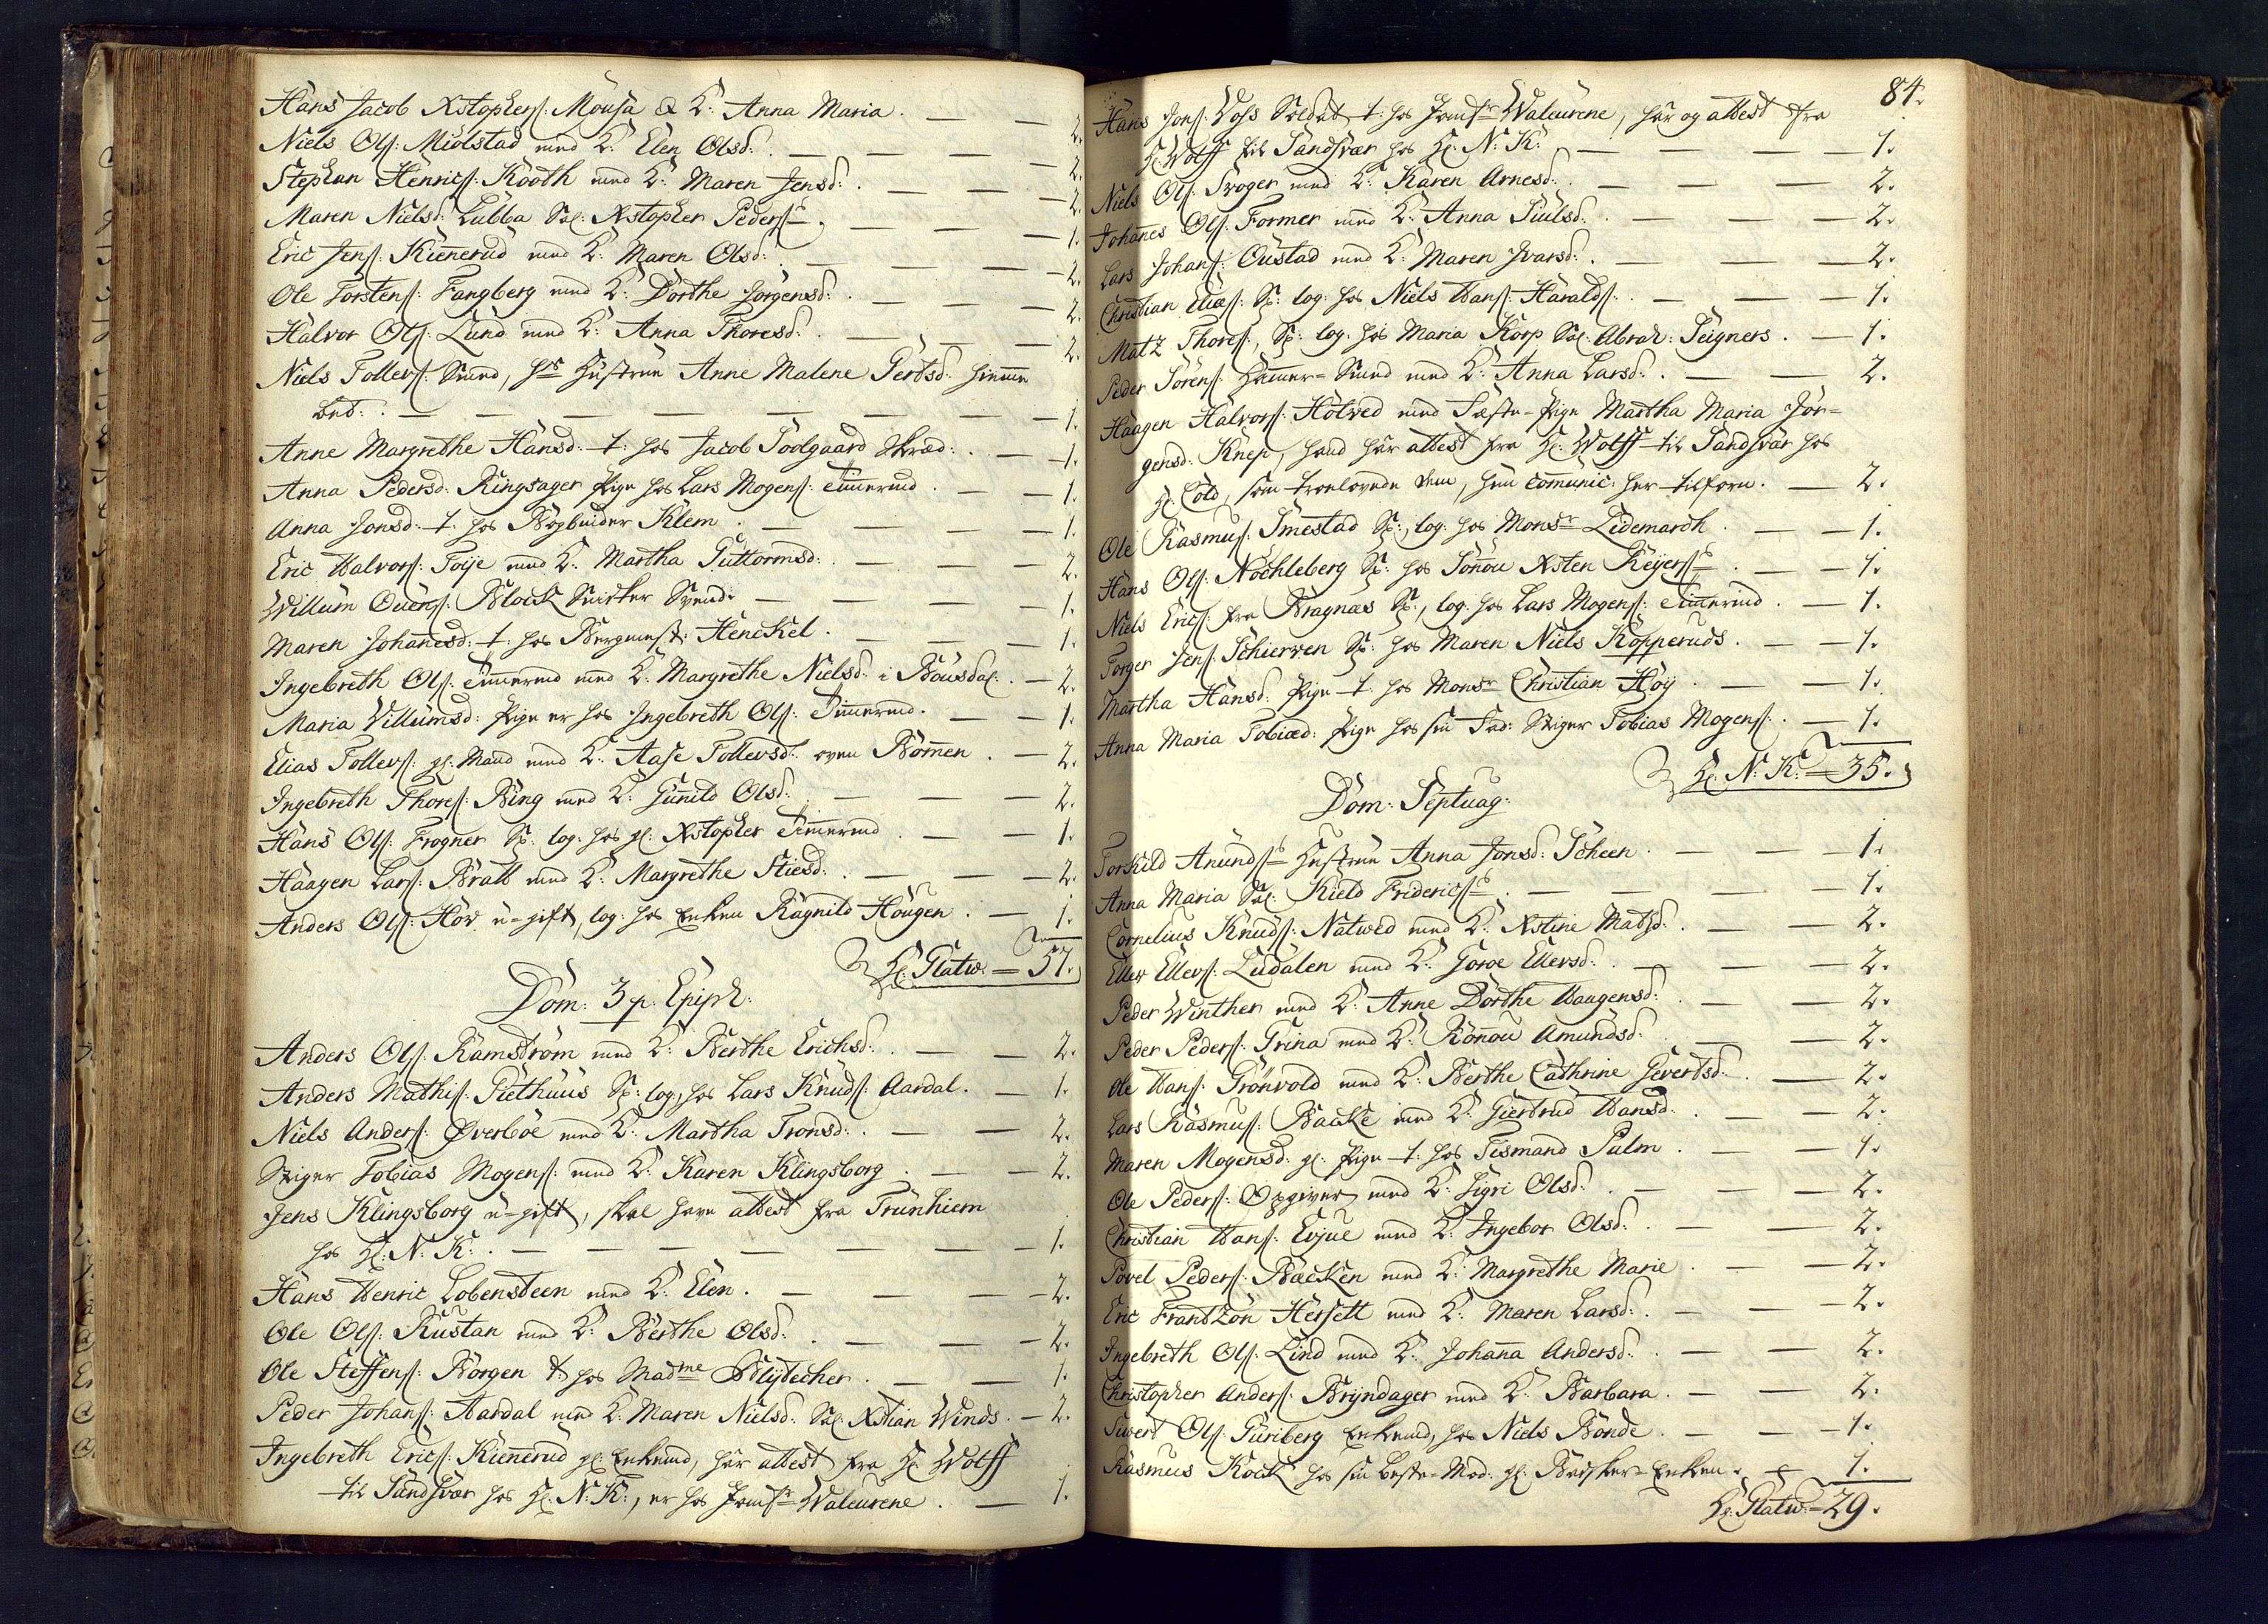 Hans Jacob Xstophers: Mousa & K: Anna Maria. — — 2.
Niels Ols: Miölstad med K: Elen Olsd: — — — — 2.
Stephan Henrics: Kooth med K: Maren Jensd: . — — — 2.
Maren Nielsd: Lubba Sal: Xstopher Peders: — — — 1.
Eric Jens: Kienerud med K: Maren Olsd: — — — 2.
Ole Torstens: Fangberg med K: Dorthe Jörgensd: . — — — 2.
Halvor Ols: Lund med K: Anna Thoresd: — — — 2.
Niels Tollevs: Smed, hs Hustrue Anne Malene Gertsd: hiemme
bet: . — — — — — — — — 1.
Anne Margrethe Hansd: t: hos Jacob Soelgaard Skræd: . — 1.
Anna Pedersd: Ringsager Pige hos Lars Mogens: Timermd . — — 1.
Anna Jonsd: t: hos Bogbinder Klem . — — — — 1.
Eric Halvors: Foije med K: Martha Guttormsd: . — — — 2.
Willum Ouens: Block Snidker Svend. — — — — 1.
Maren Johanesd: t: hos Bergmest: Henckel . — — — 1.
Ingebreth Ols: Timermd med K: Margrethe Nielsd: i Bousdal: . — 2.
Maria Villumsd: Pige er hos Ingebreth Ols: Timermd. — — 1.
Elias Tollevs: gl: Mand med K: Aase Tollevsd: oven Bommen . — 2.
Ingebreth Thores: Bing med K: Gunild Olsd: — — — 2.
Hans Ols: Frogner Sp: log: hos gl: Xstopher Timermd . — — 1.
Haagen Lars: Bratt med K: Margrethe Stiesd: . — — — 2.
Anders Ols: Hov u-gift, log: hos Enken Ragnild Hougen . — 1.
Hr: Platw: = 37.
Dom: 3 p: Epiph:
Anders Ols: Ramström med K: Berthe Erichsd: . — — 2.
Anders Mathis: Giethuus Sp: log: hos Lars Knuds: Aardal. — 1.
Niels Anders: Øverböe med K: Martha Tronsd: . — — 2.
Stiger Tobias Mogens: med K: Karen Klingsborg . — — 2.
Jens Klingsborg u-gift, skal have attest fra Trunhiem
hos Hr: N: K: . — — — — — — — 1.
Hans Henric Lobensteen med K: Elen . — — — — 2.
Ole Ols: Rustan med K: Berthe Olsd: . — — — 2.
Ole Steffens: Borgen t: hos Madme Blytecher . — — 1.
Peder Johans: Aardal med K: Maren Nielsd: Sal: Xstian Winds. — 2.
Ingebreth Erics: Kienerud gl: Enkemd, har attest fra Hr: Wolff
til Sandsvær hos Hr: N: K:, er hos Jomfr Waleurene . — 1.
84.
Hans Jons: Voss Soldat t: hos Jomfr Waleurene, har og attest fra
Hr: Wolff til Sandsvær hos Hr: N: K: . — — — — 1.
Niels Ols: Svoger med K: Karen Arnesd: . — — — 2.
Johannes Ols: Former med K: Anna Siulsd: . — — — 2.
Lars Johans: Oustad med K: Maren Ivarsd: . — — — 2.
Christian Elias: Sp: log: hos Niels Hans: Haralds: . — — — 1.
Matz Thores: Sp: log: hos Maria Korp Sal: Abrah: Seigners . — 1.
Peder Sörens: Hammer-Smed med K: Anna Larsd: . — — 2.
Haagen Halvors: Holved med Fæste-Pige Martha Maria Jör-
gensd: Knep, hand har attest fra Hr: Wolff til Sandsvær hos
Hr: Cold, som troelovede dem, hun comunic: her tilforn. — 2.
Ole Rasmus: Smestad Sp: log: hos Monsr Lidemardh . — — 1.
Hans Ols: Nochleberg Sp: hos Sönnöu Xsten Reyers . — — 1.
Niels Erics: fra Bragnæs Sp:, log: hos Lars Mogens: Timermd . — 1.
Torger Jens: Schierven Sp: hos Maren Niels Kopperuds . — — 1.
Martha Hansd: Pige t: hos Monsr Christian Höy . — — 1.
Anna Maria Tobiæd: Pige hos sin Fad: Stiger Tobias Mogens: . — 1.
Hr: N: K: = 35.
Dom: Septuag:
Torkild Anunds Hustrue Anna Jonsd: Scheen . — — — 1.
Anna Maria Sal: Kield Friderics . — — — — 1.
Cornelius Knuds: Natwed med K: Xstine Matsd: . — — 2.
Ellev Ellevs: Ludalen med K: Goroe Ellevsd: . — — — 2.
Peder Winther med K: Anne Dorthe Haagensd: . — — 2.
Peder Peders: Trina med K: Ronnou Amundsd: — — 2.
Ole Hans: Grönvold med K: Berthe Cathrine Gevertsd: . — 2.
Lars Rasmus: Backe med K: Giertrud Hansd: . — — 2.
Maren Mogensd: gl: Pige t: hos Tismand Palm . — — 1.
Ole Peders: Opgiver med K: Sigri Olsd: . — — — 2.
Christian Hans: Evjue med K: Ingebor Olsd: . — — 2.
Povel Peders: Bæcken med K: Margrethe Marie . — — 2.
Eric Frantzön Hersett med K: Maren Larsd: . — — 2.
Ingebreth Ols: Lind med K: Johanna Andersd: . — — 2.
Christopher Anders: Bryndager med K: Barbara . — — 2.
Siwert Ols: Guriberg Enkemd, hos Niels Bonde . — — 1.
Rasmus Kock hos sin beste-Mod: gl: Bødker-Enken . — 1.
Hr: Platw: = 29.